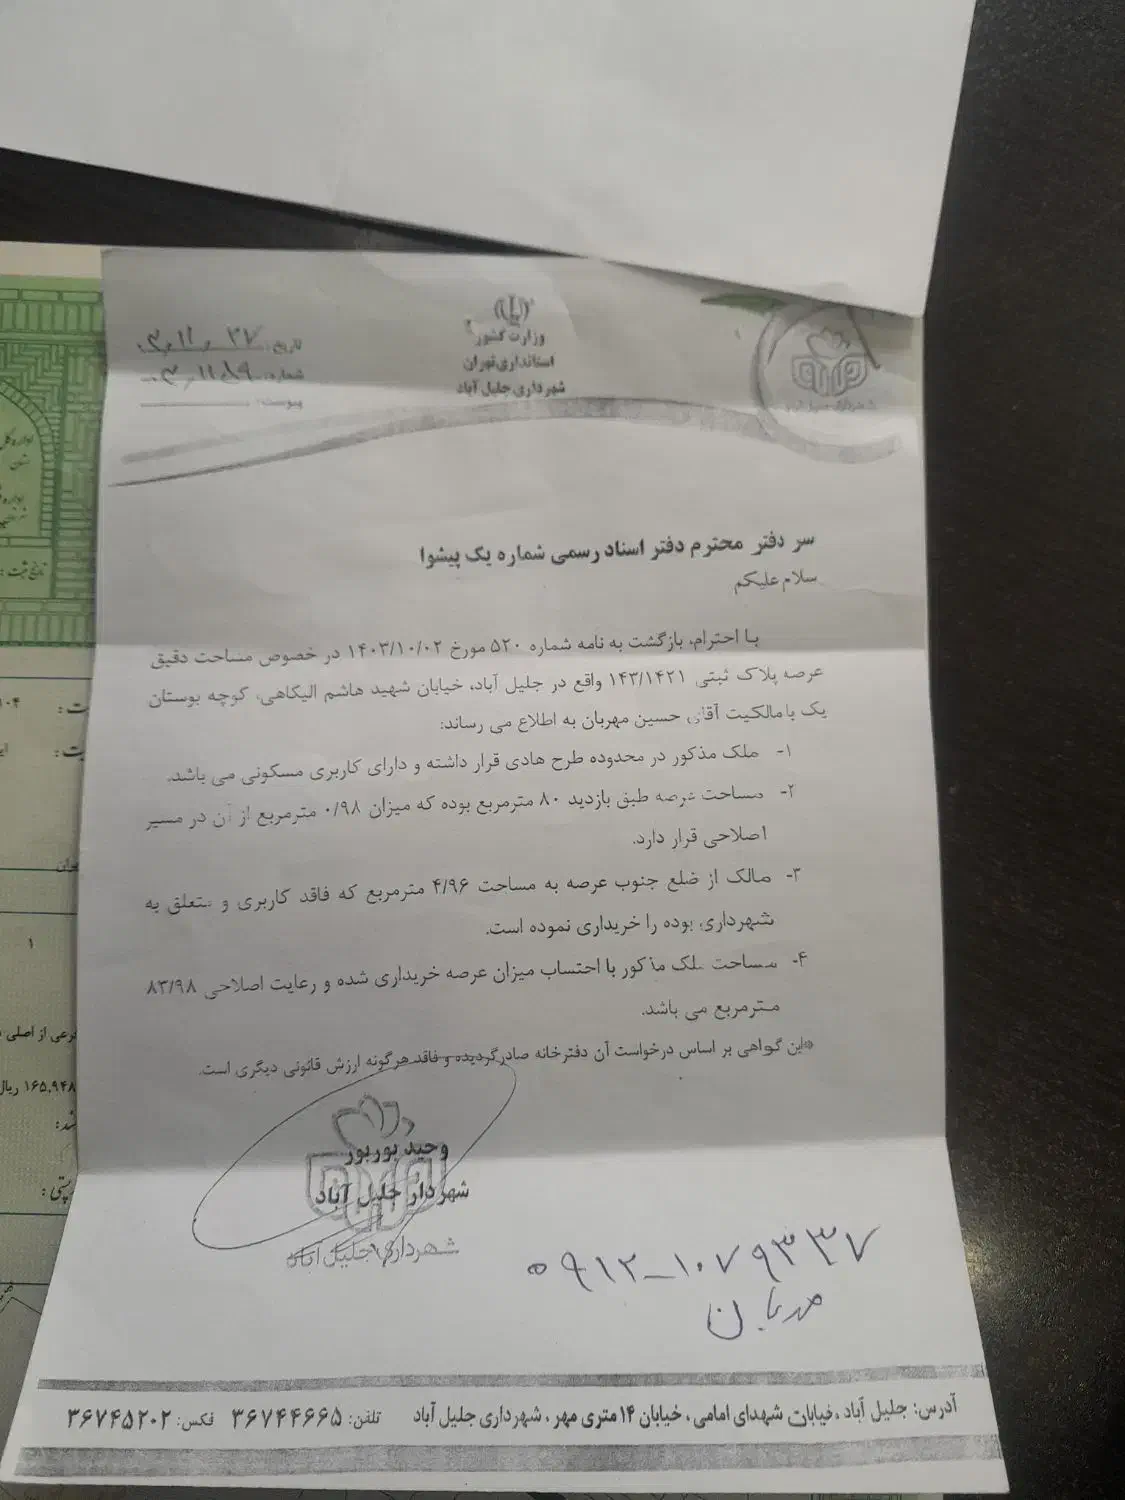 وزارت کشور
استانداری تهران
شهرداری جلیل آباد
تاریخ:
شماره:
پیوست:
سر دفتر محترم دفتر اسناد رسمی شماره یک پیشوا
سلام علیکم
با احترام، بازگشت به نامه شماره ۵۲۰ مورخ ۱۴۰۳/۱۰/۰۲ در خصوص مساحت دقیق
عرصه پلاک ثبتی ۱۴۳/۱۴۲۱ واقع در جلیل آباد، خیابان شهید هاشم الیکاهی، کوچه بوستان
یک با مالکیت آقای حسین مهربان به اطلاع می رساند:
۱- ملک مذکور در محدوده طرح هادی قرار داشته و دارای کاربری مسکونی می باشد.
۲- مساحت عرصه طبق بازدید ۸۰ مترمربع بوده که میزان ۰/۹۸ مترمربع از آن در مسیر
اصلاحی قرار دارد.
۳- مالک از ضلع جنوب عرصه به مساحت ۴/۹۶ مترمربع که فاقد کاربری و متعلق به
شهرداری بوده را خریداری نموده است.
۴- مساحت ملک مذکور با احتساب میزان عرصه خریداری شده و رعایت اصلاحی ۸۳/۹۸
مترمربع می باشد.
*این گواهی بر اساس درخواست آن دفترخانه صادر گردیده و فاقد هرگونه ارزش قانونی دیگری است.
وحید بوربور
شهردار جلیل آباد
شهرداری جلیل آباد
۰۹۱۲-۱۰۷۹۳۳۷
مهربان
آدرس: جلیل آباد ، خیابان شهدای امامی ، خیابان ۱۴ متری مهر ، شهرداری جلیل آباد تلفن: ۳۶۷۴۴۶۶۵ فکس: ۳۶۷۴۵۲۰۲
تاریخ ثبت :
۱
۱۶۵,۹۴۸ ریال